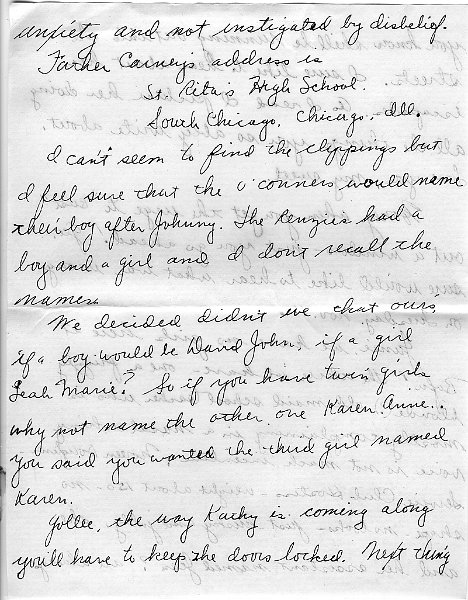 anxiety and not instigated by disbelief.
Father Carney's address is
St. Rita's High School.
South Chicago, Chicago, Ill.
I can't seem to find the clippings but
I feel sure that the O'conners would name
their boy after Johnny. The Renzies had a
boy and a girl and I don't recall the
names.
We decided didn't we that ours,
if a boy would be David John, if a girl
Leah Marie? So if you have twin girls
why not name the other one Karen Anne..
You said you wanted the third girl named
Karen.
Gollee, the way Kathy is coming along
you'll have to keep the doors locked. Next thing